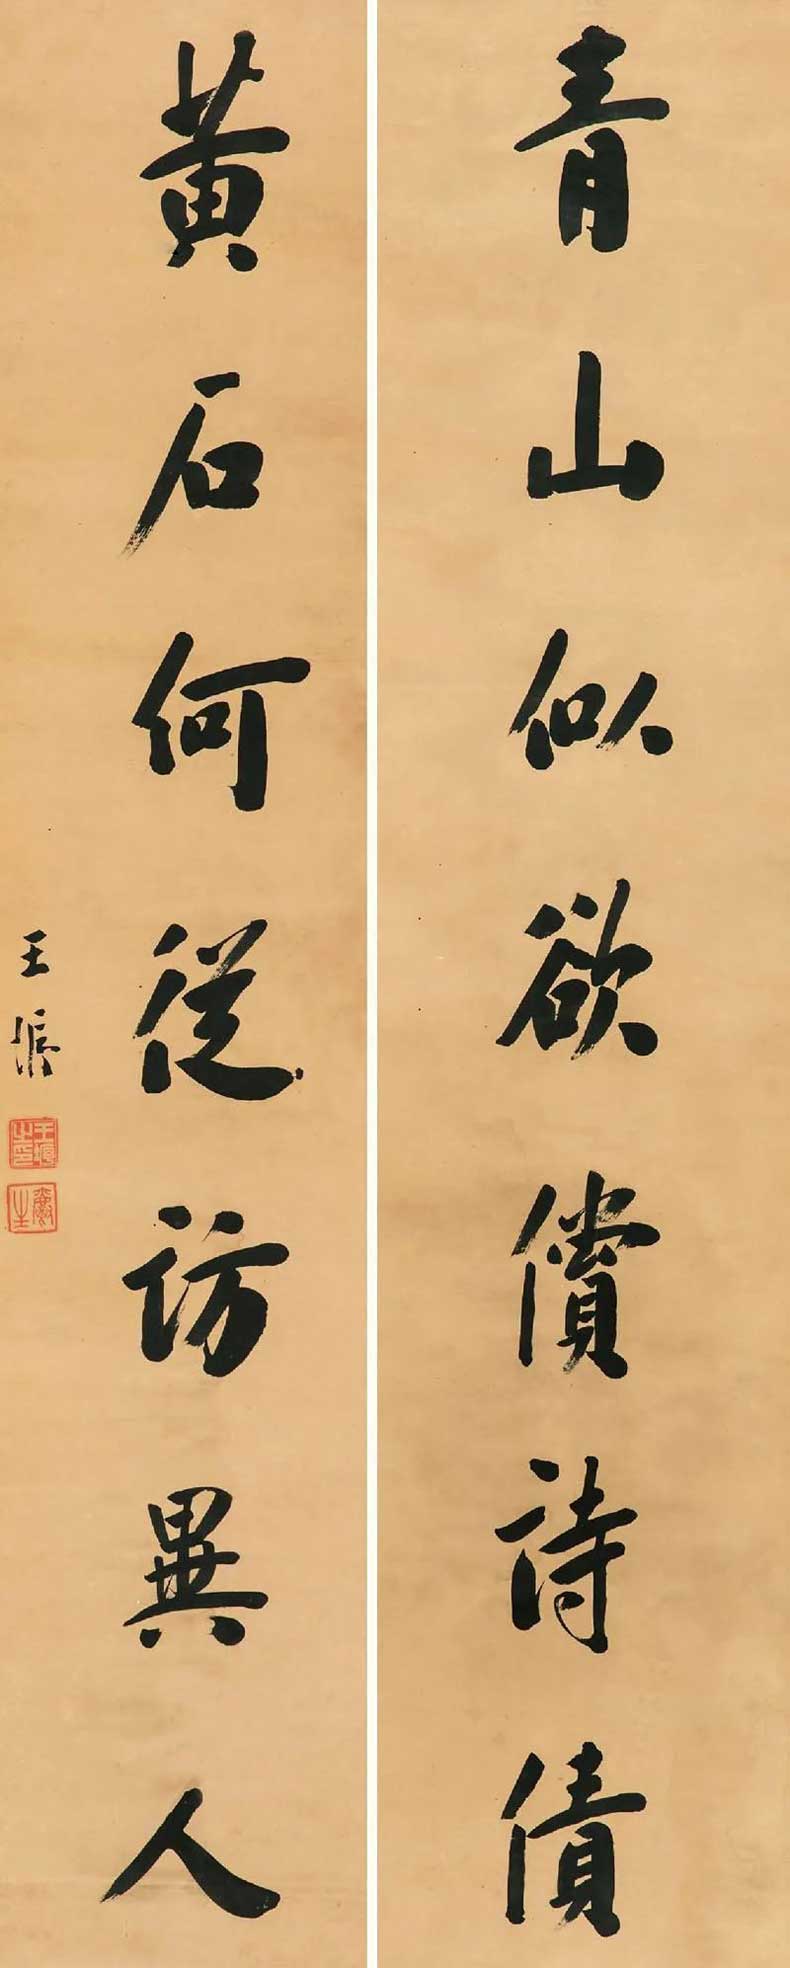 青山似欲償詩債
黃石何從訪異人
王